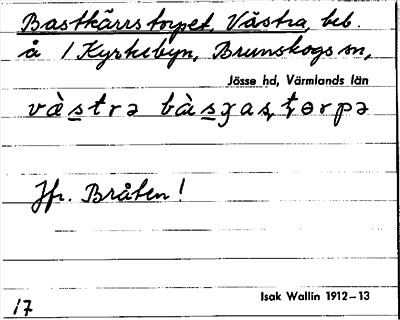 Bastkärrstorpet, Västra, beb.
å 1 Kyrkebyn, Brunskogs sn,
Jösse hd, Värmlands län
væ̀strə bàsɣas,ţərpə
Jfr. Bråten!
Isak Wallin 1912–13
17